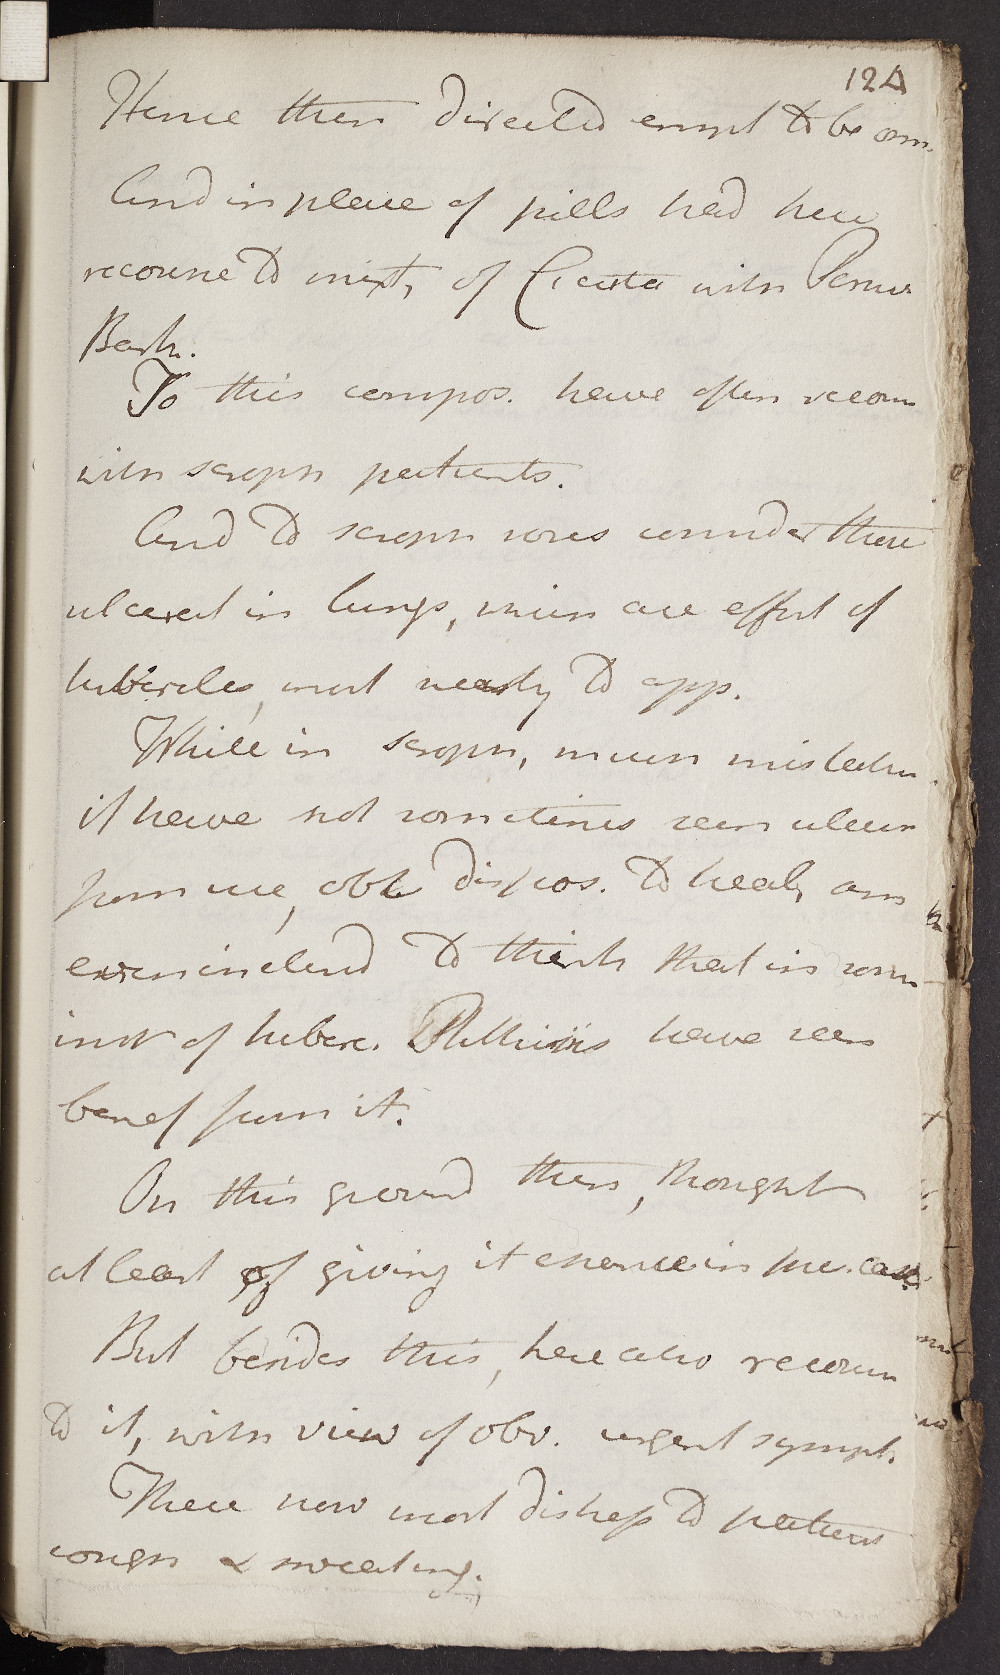 124
Hence then directed empl to be om.
And in place of pills had here
recourse to mixt, of Cicuta with Peruv
Bark.
To this compos. have often recour
with scroph patients.
And to scroph sores consider these
ulcerat in lungs, which are effect of
tubercles, most nearly to app.
While in scroph, much mistaken.
if have not sometimes seen ulcer
from use, obt dispos. to heal, am
even inclined to think that in some
inst of tuberc. Phthisis have seen
benef from it.
On this ground then, thought
at least of giving it chance in pres. case.
But besides this, have also recour
to it, with view of obv. urgent sympt.
These now most distress to patient
cough & sweating.